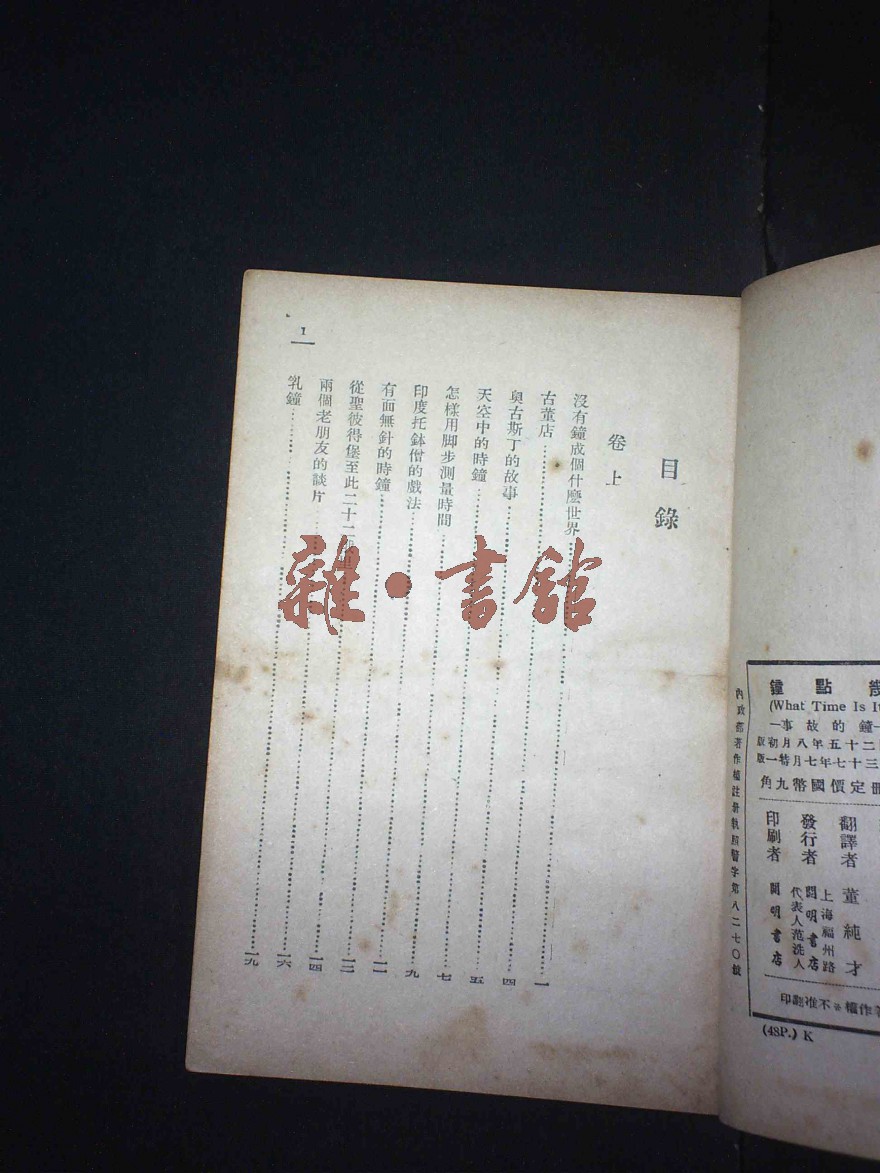 目錄
卷上
沒有鐘成個什麼世界……一
古董店……四
奧古斯丁的故事……五
天空中的時鐘……七
怎樣用脚步測量時間……九
印度托鉢僧的戲法……一一
有面無針的時鐘……一二
從聖彼得堡至此二十二……一四
兩個老朋友的談片……一六
乳鐘……一九
1
雜·書館
幾點鐘
(What Time Is It
一鐘的故事一
二十五年八月初版
三十七年七月特一版
冊定價國幣九角
翻譯者 董純才
發行者 上海福州路 開明書店 代表人范洗人
印刷者 開明書店
著作權不准翻印
(48P.) K
內政部著作權註册執照警字第八二七〇號